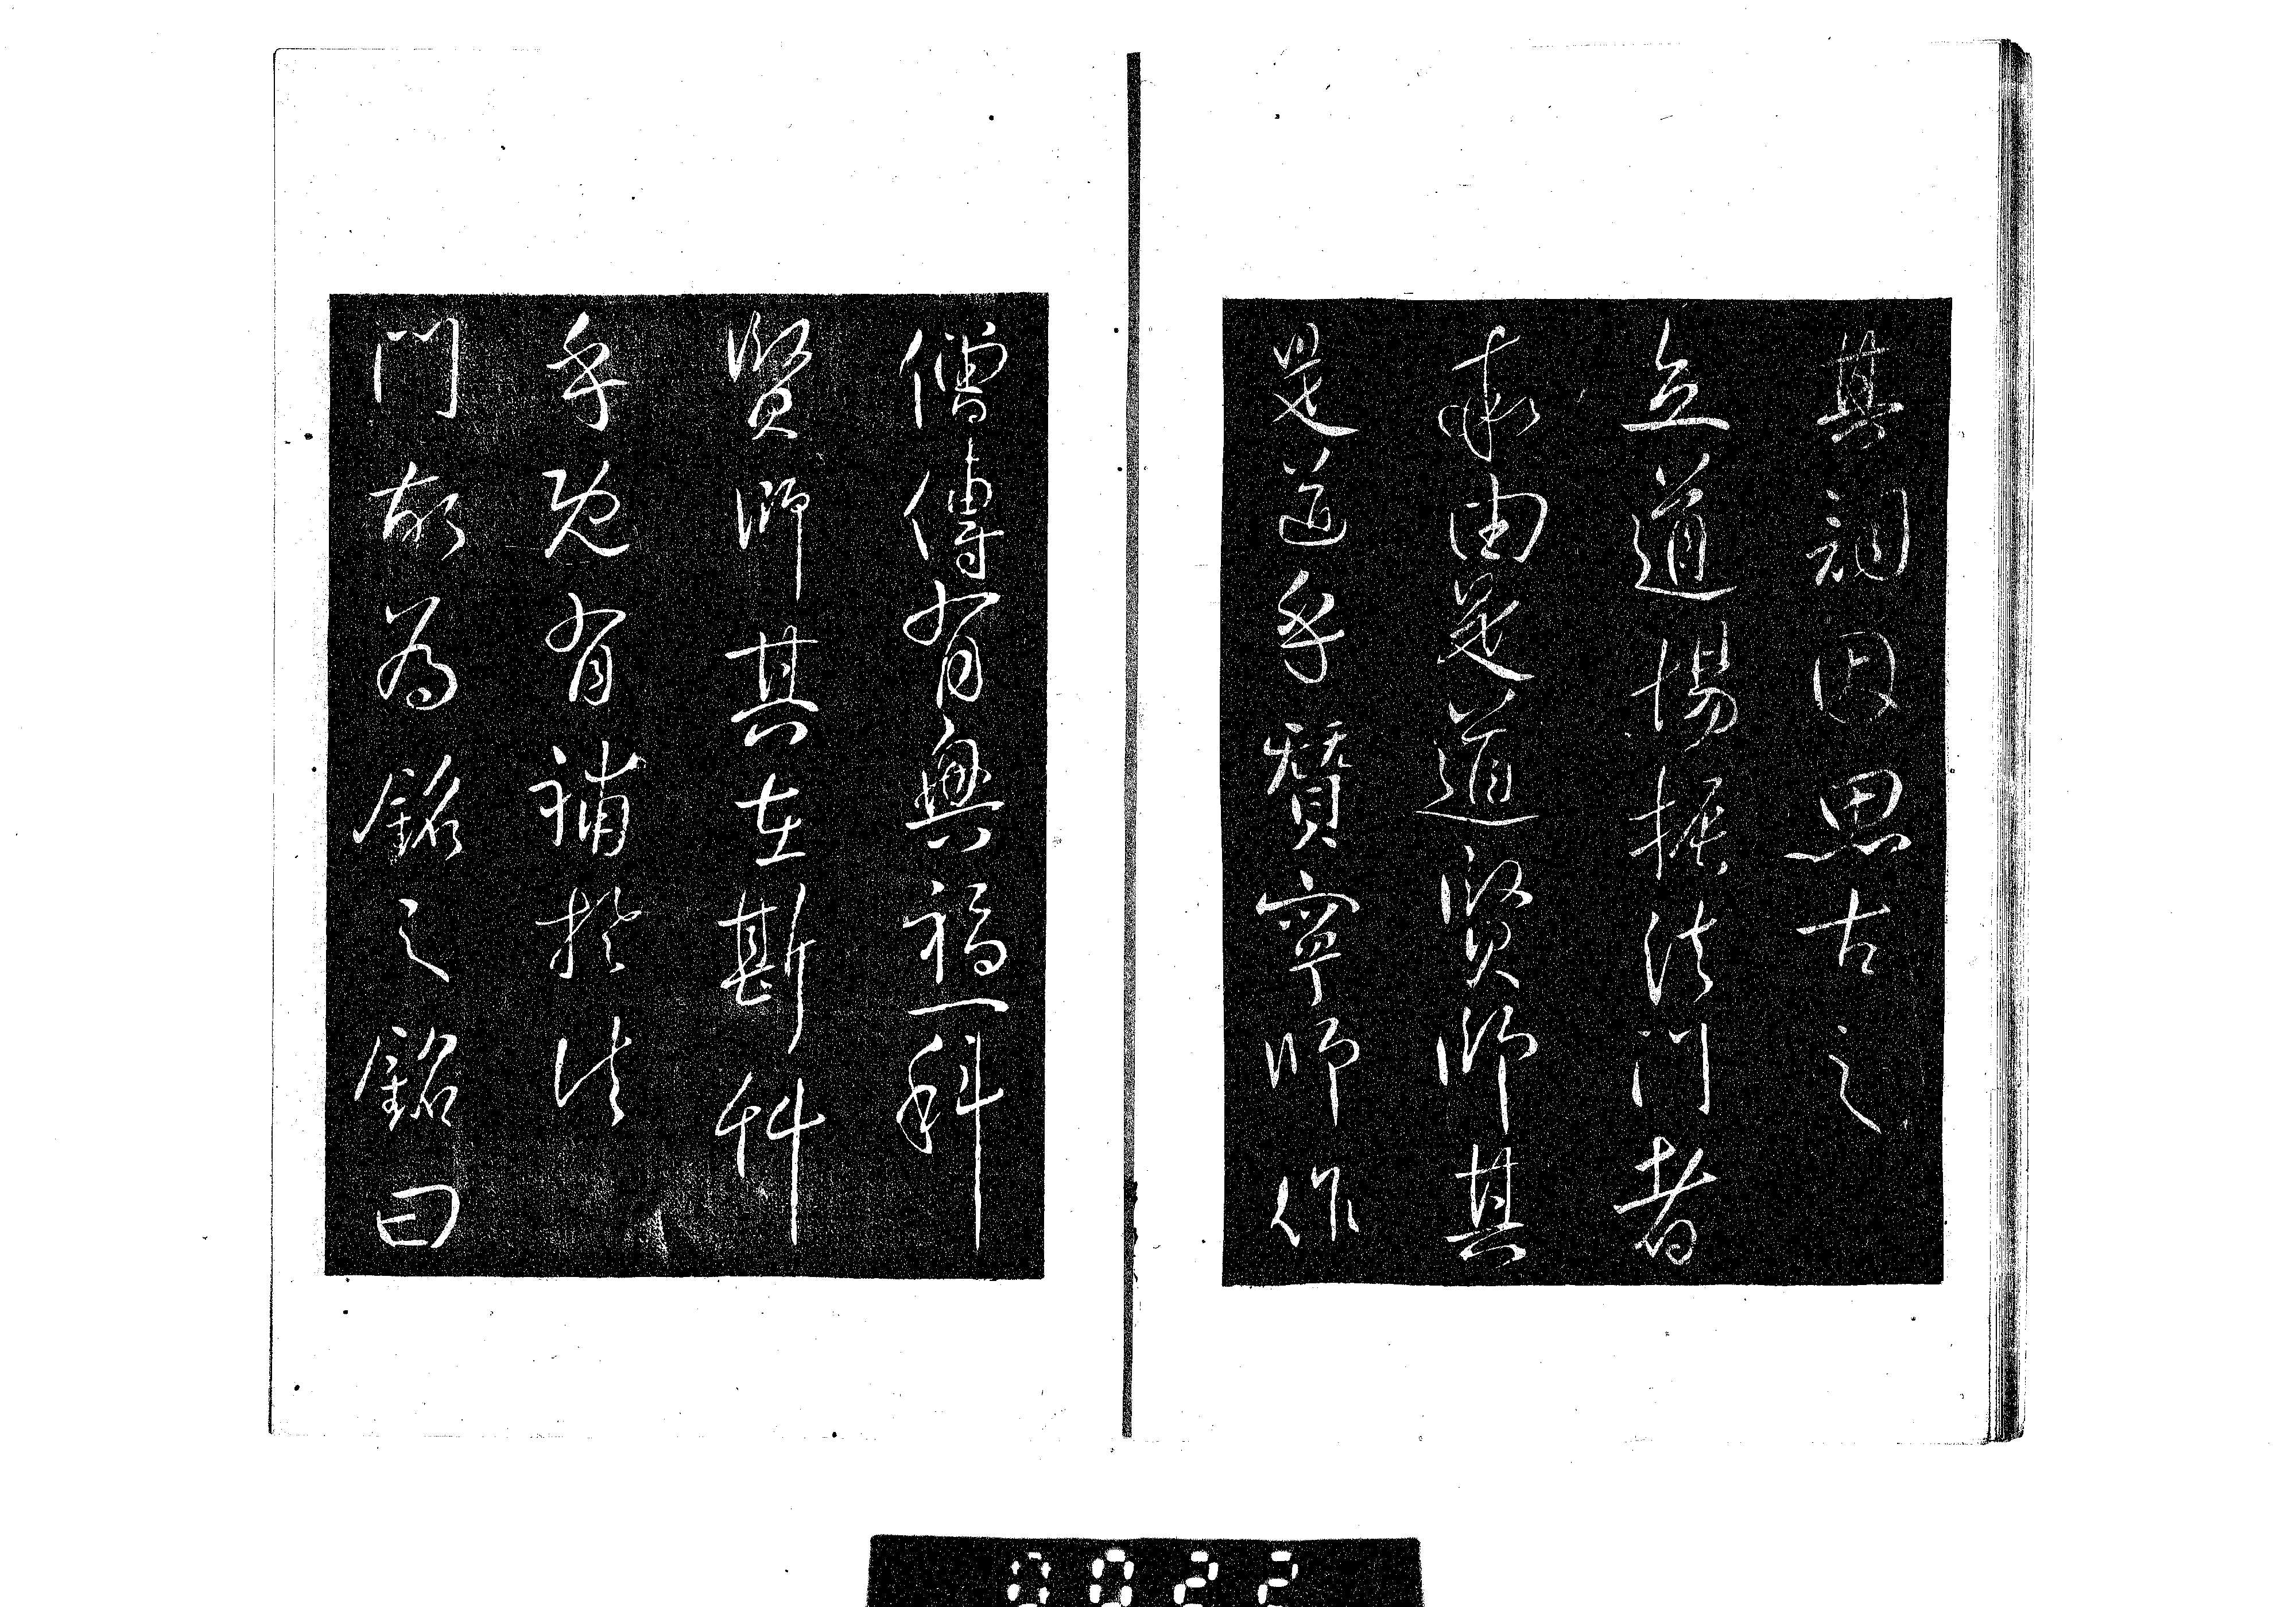 其詞因思古之
立道場振法門者
率由是道賢師其
是道乎贊寧師作
僧傳有興福一科
賢師其在斯科
乎既有補於法
門故為銘之銘曰
0022